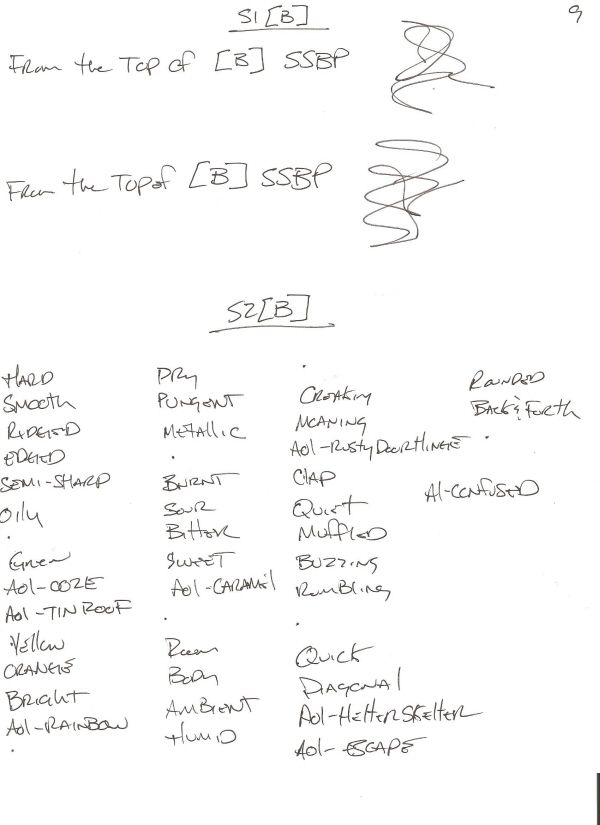 S1[B]
9
From the Top of [B] SSBP
From the Top of [B] SSBP
S2[B]
HARD
SMOOTH
RIDGED
EDGED
SEMI-SHARP
Oily
.
Green
Aol-OOZE
Aol-TIN ROOF
Yellow
ORANGE
BRIGHT
Aol-RAINBOW
.
DRY
PUNGENT
METALLIC
.
BURNT
SOUR
BITTER
SWEET
Aol-CARAMEL
.
Room
Body
AMBIENT
HUMID
.
CREAKING
MOANING
Aol-RUSTY DOOR HINGE
CLAP
QUIET
MUFFLED
BUZZING
RUMBLING
.
QUICK
DIAGONAL
Aol-HELTER SKELTER
Aol-ESCAPE
ROUNDED
BACK & FORTH
.
AI-CONFUSED